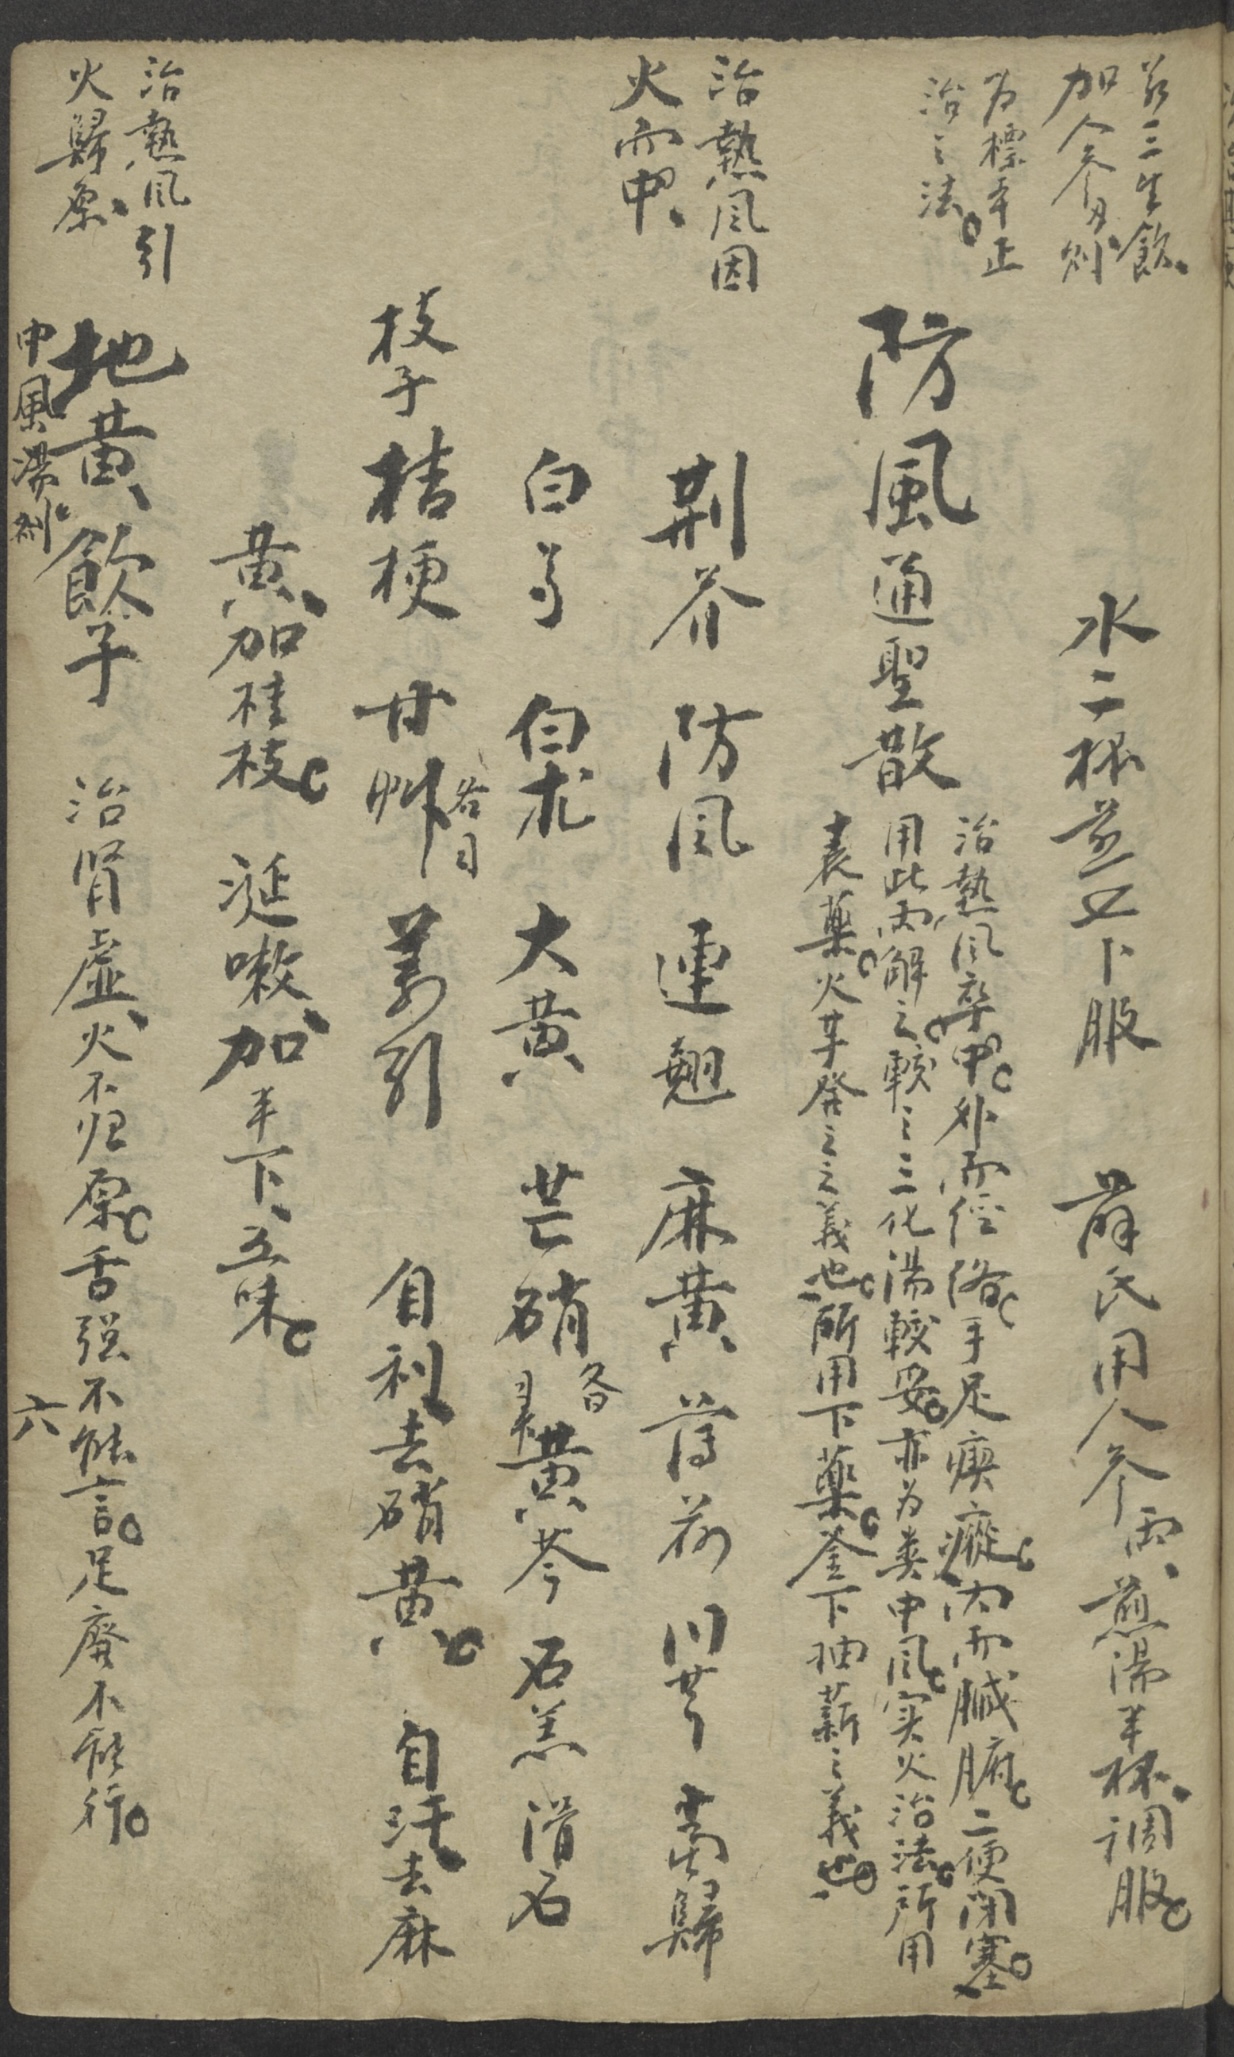 若三生飲、
加人參方則
為標本正
治之法。
水二杯並五卜服 薛氏用人參両、煎湯半杯、調服。
防風通聖散
治熱风卒中。外而經絡。手足瘈瘲。內而臟腑。二便閉塞。
用此両解之。較之三化湯較妥。亦為类中风。实火治法。所用
表藥。火芉發之之義也。所用下藥。釜下抽薪之義也。
治熱风因
火而中、
荆芥 防风 連翹 麻黄 薄荷 川芎 當歸
白芍 白朮 大黄 芒硝各 黄芩 石羔 滑石
枝子 桔梗 甘艸各 姜引 自利去硝黄。自汗去麻
黄、加桂枝。涎嗽、加半下、五味。
治熱风引
火歸原、
地黄飲子 治肾虛、火不归原。舌强不能言。足廢不能行。
中風湯剂 六